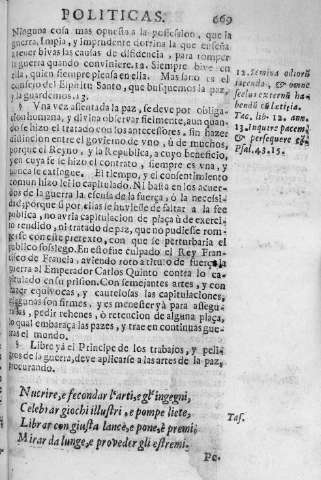 POLITICAS. 669
Ninguna cosa mas opuesta a la possession, que la
guerra. Impia, y imprudente dotrina la que enseña
tener bivas las causas de difsidencia, para romper
la guerra quando conviniere. 12. Siempre bive en
ella, quien siempre piensa en ella. Mas sano es el
consejo del Espiritu Santo, que busquemos la paz,
y la guardemos. 13.
§ Vna vez assentada la paz, se deve por obliga-
cion humana, y divina observar fielmente, aun quan-
do se hizo el tratado con los antecessores, sin hazer
distincion entre el govierno de vno, ù de muchos,
porque el Reyno, y la Republica, a cuyo beneficio,
y en cuya fe se hizo el contrato, siempre es vna, y
nunca se extingue. El tiempo, y el consentimiento
comun hizo lei lo capitulado. Ni basta en los acuer-
dos de la guerra la escusa de la fuerça, ò la necessi-
dad; porque si por ellas se huviesse de faltar a la fee
publica, no avria capitulacion de plaça ù de exerci-
to rendido, ni tratado de paz, que no pudiesse rom-
perse con este pretexto, con que se perturbaria el
publico sosiego. En esto fue culpado el Rey Fran-
cisco de Francia, aviendo roto a titulo de fuerça la
guerra al Emperador Carlos Quinto contra lo ca-
pitulado en su prision. Con semejantes artes, y con
hazer equivocas, y cautelosas las capitulaciones,
ningunas son firmes, y es menester yà para assegu-
rallas, pedir rehenes, ò retencion de alguna plaça,
lo qual embaraça las pazes, y trae en continuas gue-
rras el mondo.
§ Libre yà el Principe de los trabajos, y peli-
gros de la guerra, deve aplicarse a las artes de la paz,
procurando.
Nucrire, e fecondar l'arti, e gl'ingegni,
Celebrar giochi illustri, e pompe liete,
Librar con giusta lance, e pone, è premi,
Mirar da lunge, e proveder gli estremi.
Pe.
12. Semina odiorũ
jacenda, & omne
scelus externũ ha-
bendũ cũ lætitia.
Tac. lib. 12. ann.
13. Inquire pacem
& persequere eã.
Psal. 43. 15.
Tas.